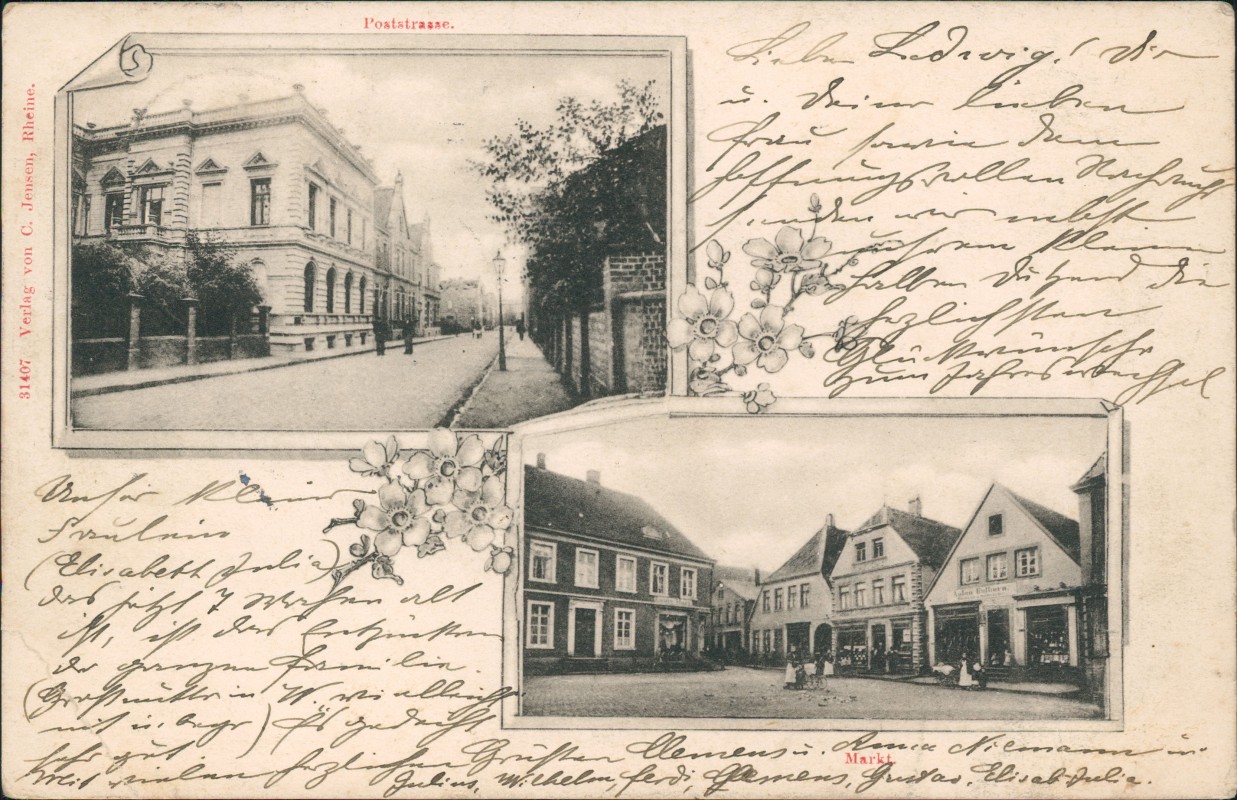 Poststrasse.
31407 Verlag von C. Jensen, Rheine.
Lieber Ludwig! Dir
u. Deiner lieben
Frau sowie dem
hoffnungsvollen Nachwuchs
senden wir nebst
unseren kleinen
halben Dutzend die
herzlichsten
Glückwünsche
zum Jahreswechsel
Unser kleines
Fräulein
(Elisabeth Julia)
das jetzt 7 Wochen alt
ist, ist das Entzücken
der ganzen Familie.
(Grossmutter in W.
mit                ) Es gedeiht
sehr gut
Mit vielen herzlichen Grüssen Clemens u. Anna Niemann
Julius, Wilhelm, Ferdi, Clemens, Gustav, Elisab. Julia.
Anton
Markt.